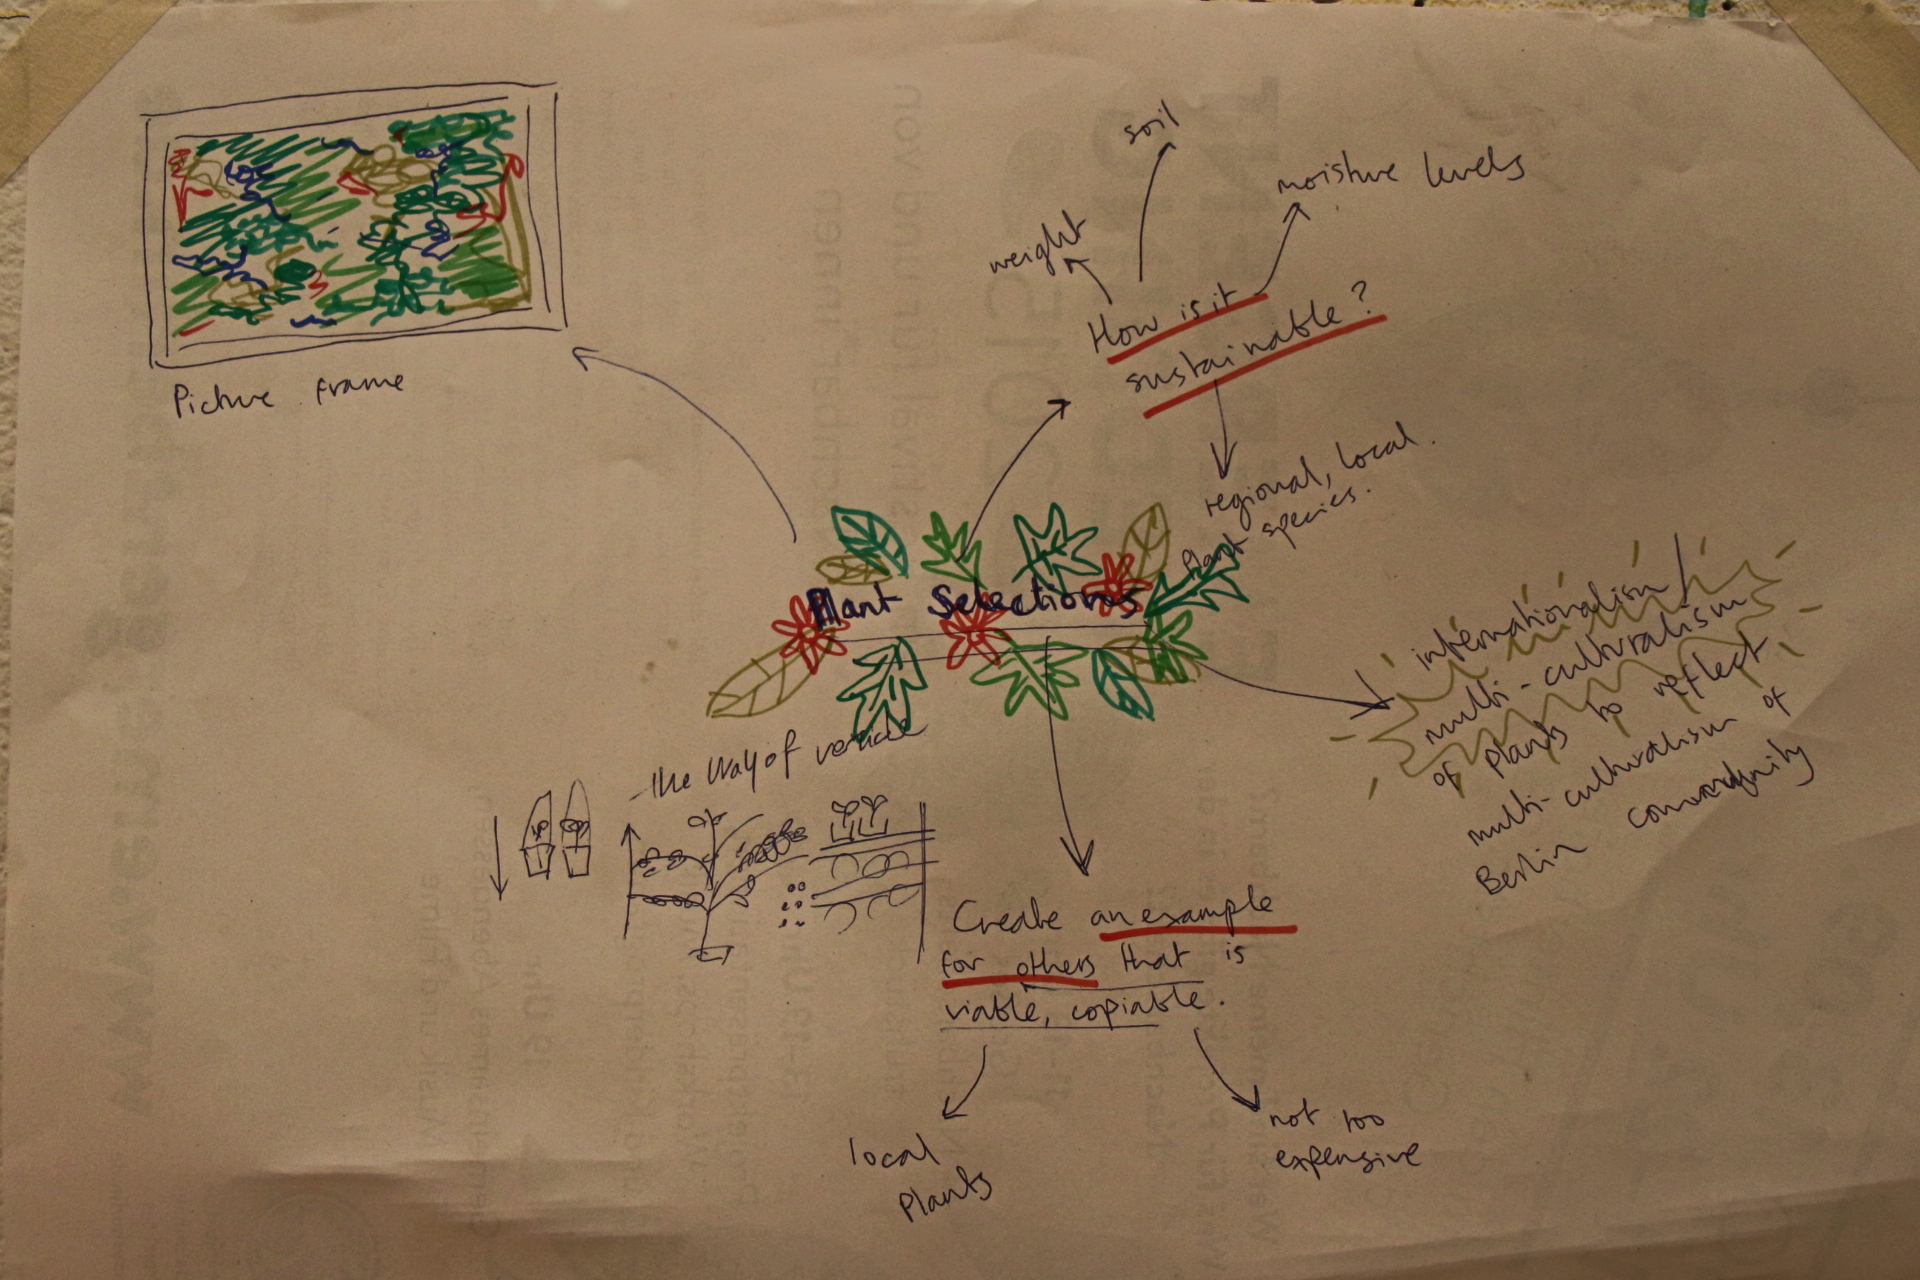 soil
moisture levels
weight
How is it
sustainable?
Picture frame
regional, local.
plant species.
Plant Selections
internationalism/
multi-culturalism
of plants to reflect
multi-culturalism of
Berlin community
- the way of
Create an example
for others that is
viable, copiable.
local
plants
not too
expensive